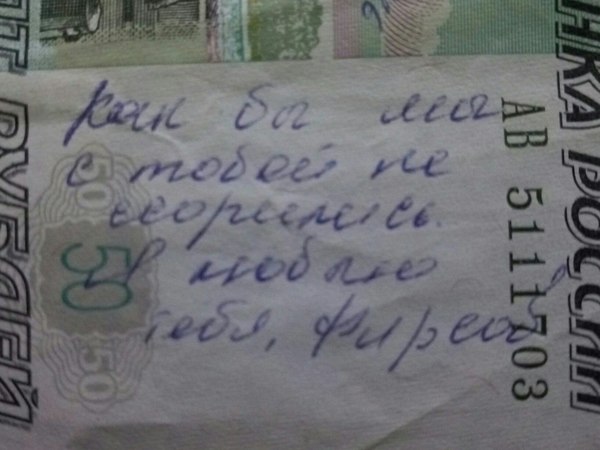 как бы мы
с тобой не
ссорились.
Я люблю
тебя, Фирсов
АВ 5111703
50
50
50
РУБЛЕЙ
РОССИИ